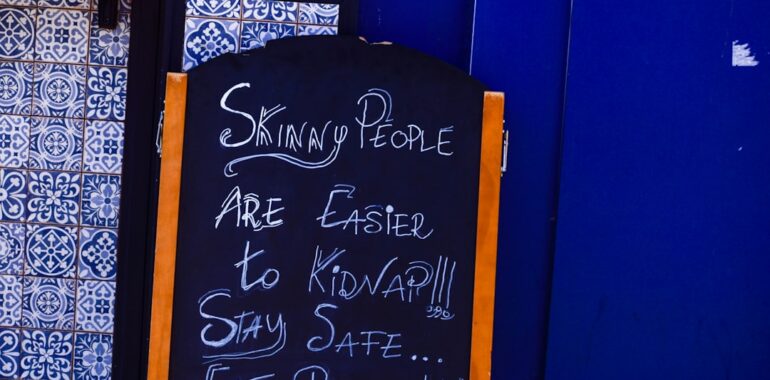 Skinny People
Are Easier
to Kidnap!!!
Stay Safe...